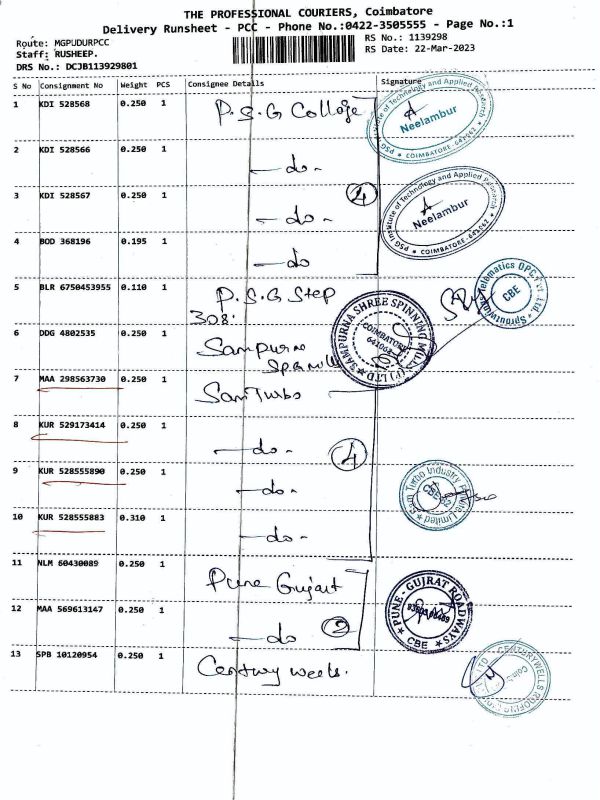 THE PROFESSIONAL COURIERS, Coimbatore
Delivery Runsheet - PCC - Phone No.:0422-3505555 - Page No.:1
Route: MGPUDURPCC
RS No.: 1139298
Staff: RUSHEEP.
RS Date: 22-Mar-2023
DRS No.: DCJB113929801
S No Consignment No Weight PCS Consignee Details Signature
1 KDI 528568 0.250 1 P.S.G College
PSG Institute of Technology and Applied Research
Neelambur
COIMBATORE-641062
2 KDI 528566 0.250 1 -do-
3 KDI 528567 0.250 1 -do- 4
PSG Institute of Technology and Applied Research
Neelambur
COIMBATORE-641062
4 BOD 368196 0.195 1 -do
5 BLR 6750453955 0.110 1 P.S.G Step
308.
CBE
6 DDG 4802535 0.250 1 Sampurna
SAMPURNA SHREE SPINNING MILL (P) LTD
COIMBATORE
7 MAA 298563730 0.250 1 Sam Turbo
8 KUR 529173414 0.250 1 -do- 4
9 KUR 528555890 0.250 1 -do-
Sam Turbo Industry Private Limited
CBE
10 KUR 528555883 0.310 1 -do-
11 NLM 60430089 0.250 1 Pune Gujart
PUNE - GUJRAT ROADWAYS
CBE
12 MAA 569613147 0.250 1 -do 2
13 SPB 10120954 0.250 1 Century wells.
CENTURYWELLS ROOFING